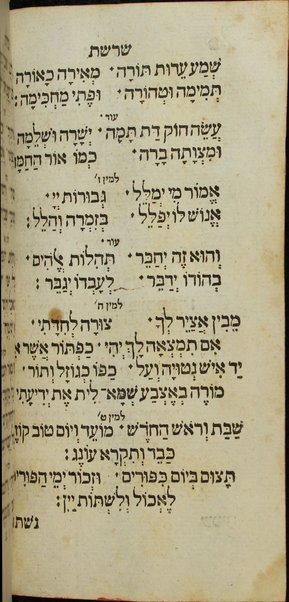 שרשת
שְׁמַע עֵדוּת תּוֹרָה · מְאִירָה כָּאוֹרָה
תְּמִימָה וּטְהוֹרָה · וּפֶתִי מַחְכִּימָה :
עוד ·
עֲשֵׂה חוֹק דַּת תַּמָּה · יְשָׁרָה וּשְׁלֵמָה
וּמִצְוָתָהּ בָּרָה · כְּמוֹ אוֹר הַחַמָּה
למין ו'
אֱמוֹר מִי יְמַלֵּל · גְּבוּרוֹת יְיָ
אֱנוֹשׁ לוֹ יְפַלֵּל · בְּזִמְרָה וְהַלֵּל :
עוד ·
וְהוּא זֶה יְחַבֵּר · תְּהִלּוֹת אֱהִים
בְּהוֹדוֹ יְדַבֵּר · לְעָבְדוֹ יְגַבֵּר :
למין ח'
מֵבִין אֲצַיֵּר לְךָ · צוּרָה לְחִדָּתִי ·
אִם תִּמְצָאָהּ לָךְ יְהִי · כַּפְתּוֹר אֲשֶׁר
יַד אִישׁ נְטוּיָה וְעַל · כַּפּוֹ כְּגוֹזָל וְתוֹר ·
מוֹרֶה בְּאֶצְבַּע שְׁמָא־לִית אֶת יְדִיעָתִי
למין ט'
שַׁבָּת וְרֹאשׁ הַחֹדֶשׁ · מוֹעֵד וְיוֹם טוֹב
כַּבֵּר וְתִקְרָא עוֹנֶג :
תָּצוּם בְּיוֹם כִּפּוּרִים · וּזְכוֹר יְמֵי הַפּוּרִי
לֶאֱכוֹל וְלִשְׁתּוֹת יַיִן :
נשת